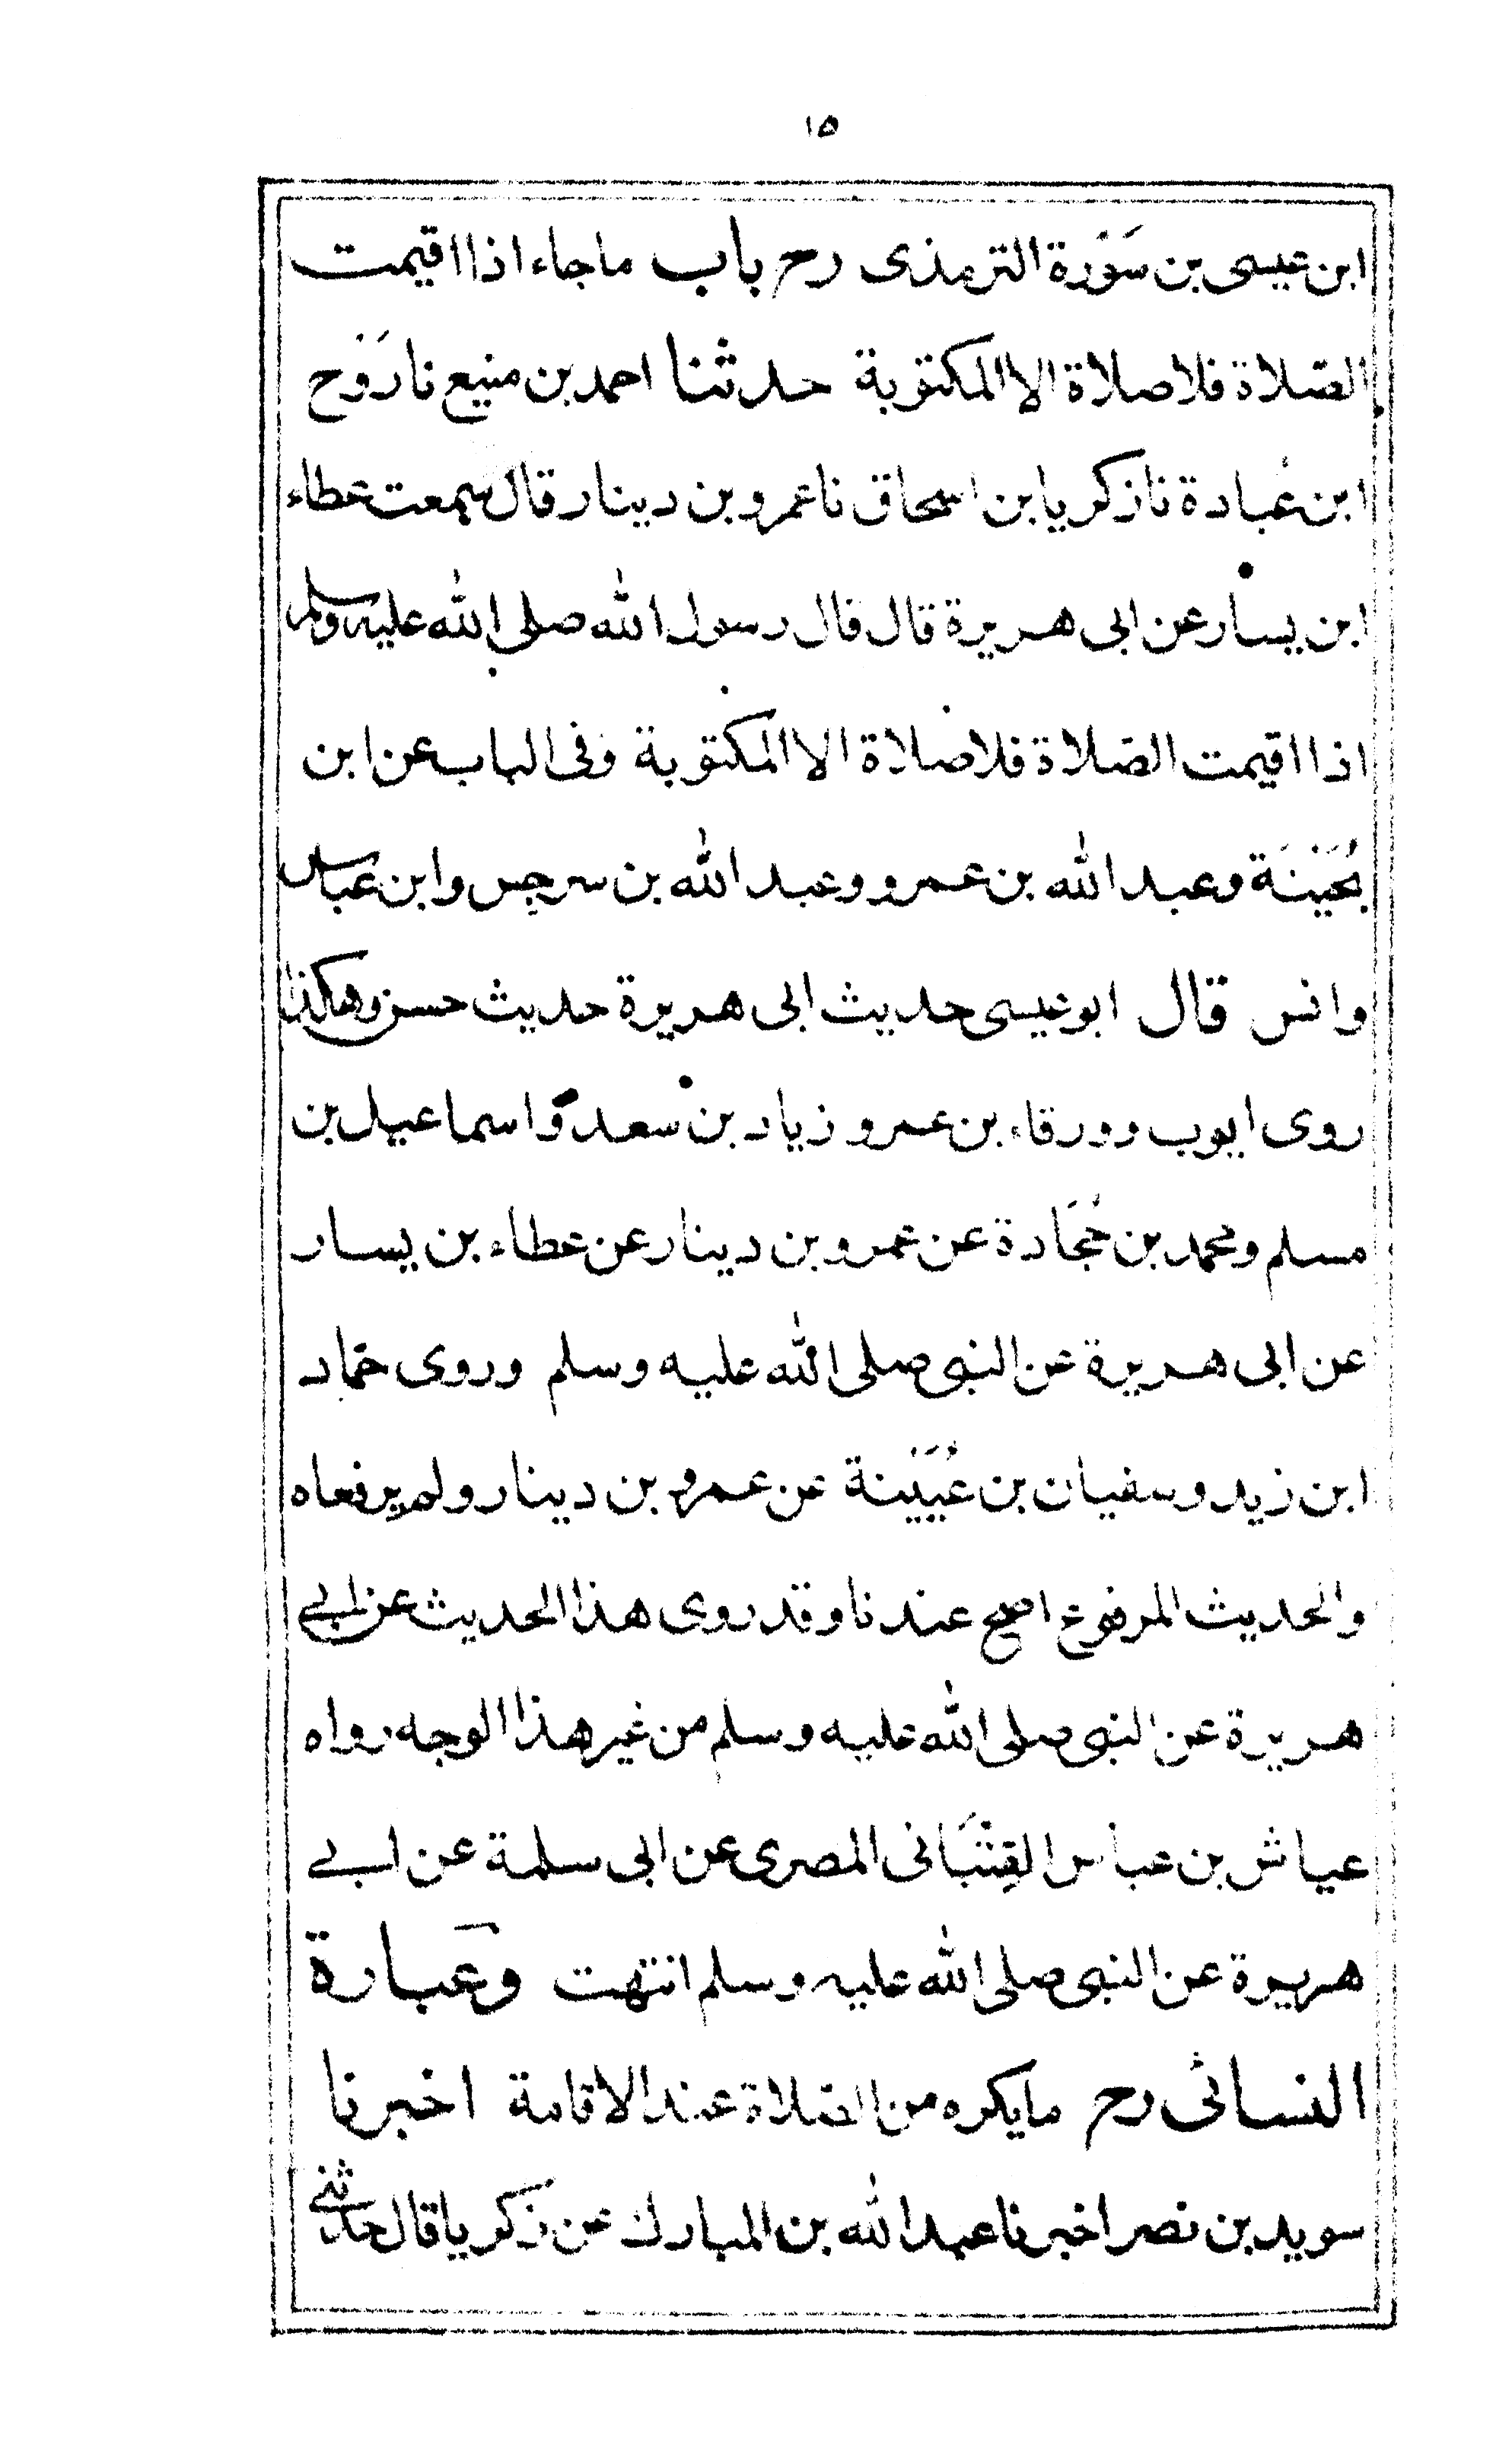 ١٥
ابن عيسى بن سَوْرة الترمذى رح باب ماجاء اذا اقيمت
الصّلاة فلا صلاة الا المكتوبة حدثنا احمد بن منيع نا رَوْح
ابن عُبادة نا زكريا بن اسحاق نا عمرو بن دينار قال سمعت عطاء
ابن يسار عن ابى هريرة قال قال رسول الله صلى الله عليه وسلم
اذا اقيمت الصّلاة فلا صلاة الا المكتوبة وفى الباب عن ابن
بُحَيْنَة وعبد الله بن عمرو وعبد الله بن سرجِس وابن عباس
وانس قال ابو عيسى حديث ابى هريرة حديث حسن وهكذا
روى ايوب وورقاء بن عمر و زياد بن سعد واسماعيل بن
مسلم ومحمد بن جُحَادة عن عمرو بن دينار عن عطاء بن يسار
عن ابى هريرة عن النبى صلى الله عليه وسلم وروى حمّاد
ابن زيد وسفيان بن عُيَيْنة عن عمرو بن دينار ولم يرفعاه
والحديث المرفوع اصح عندنا وقد روى هذا الحديث عن ابى
هريرة عن النبى صلى الله عليه وسلم من غير هذا الوجه رواه
عياش بن عباس القِتْبَانى المصرى عن ابى سلمة عن ابى
هريرة عن النبى صلى الله عليه وسلم انتهت وعبارة
النسائى رح مايكره من الصّلاة عند الاقامة اخبرنا
سويد بن نصر اخبرنا عبد الله بن المبارك عن زكريا قال حدثنى